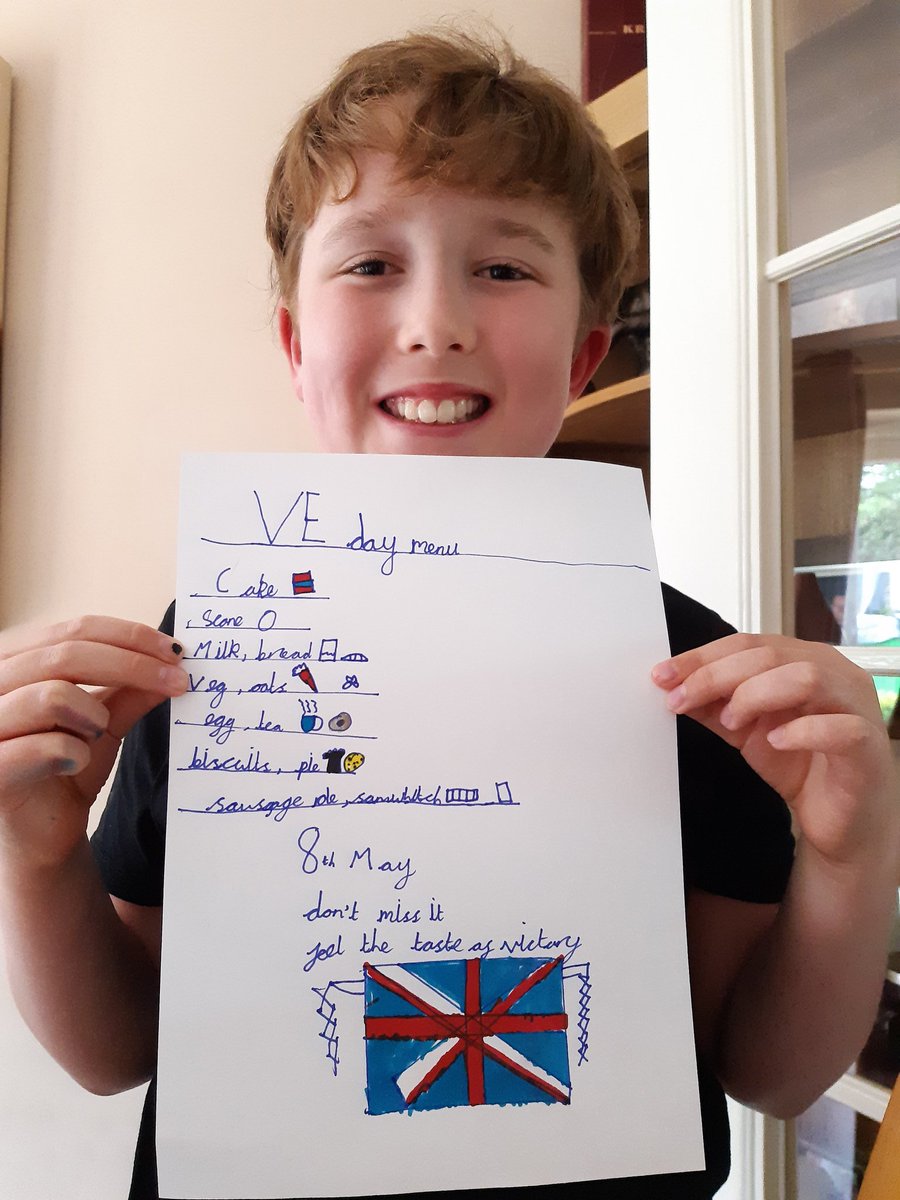 VE day menu
Cake
Scone
Milk, bread
Veg, oats
egg, tea
biscuits, pie
sausage role, samwhitch
8th May
don't miss it
feel the taste of victory